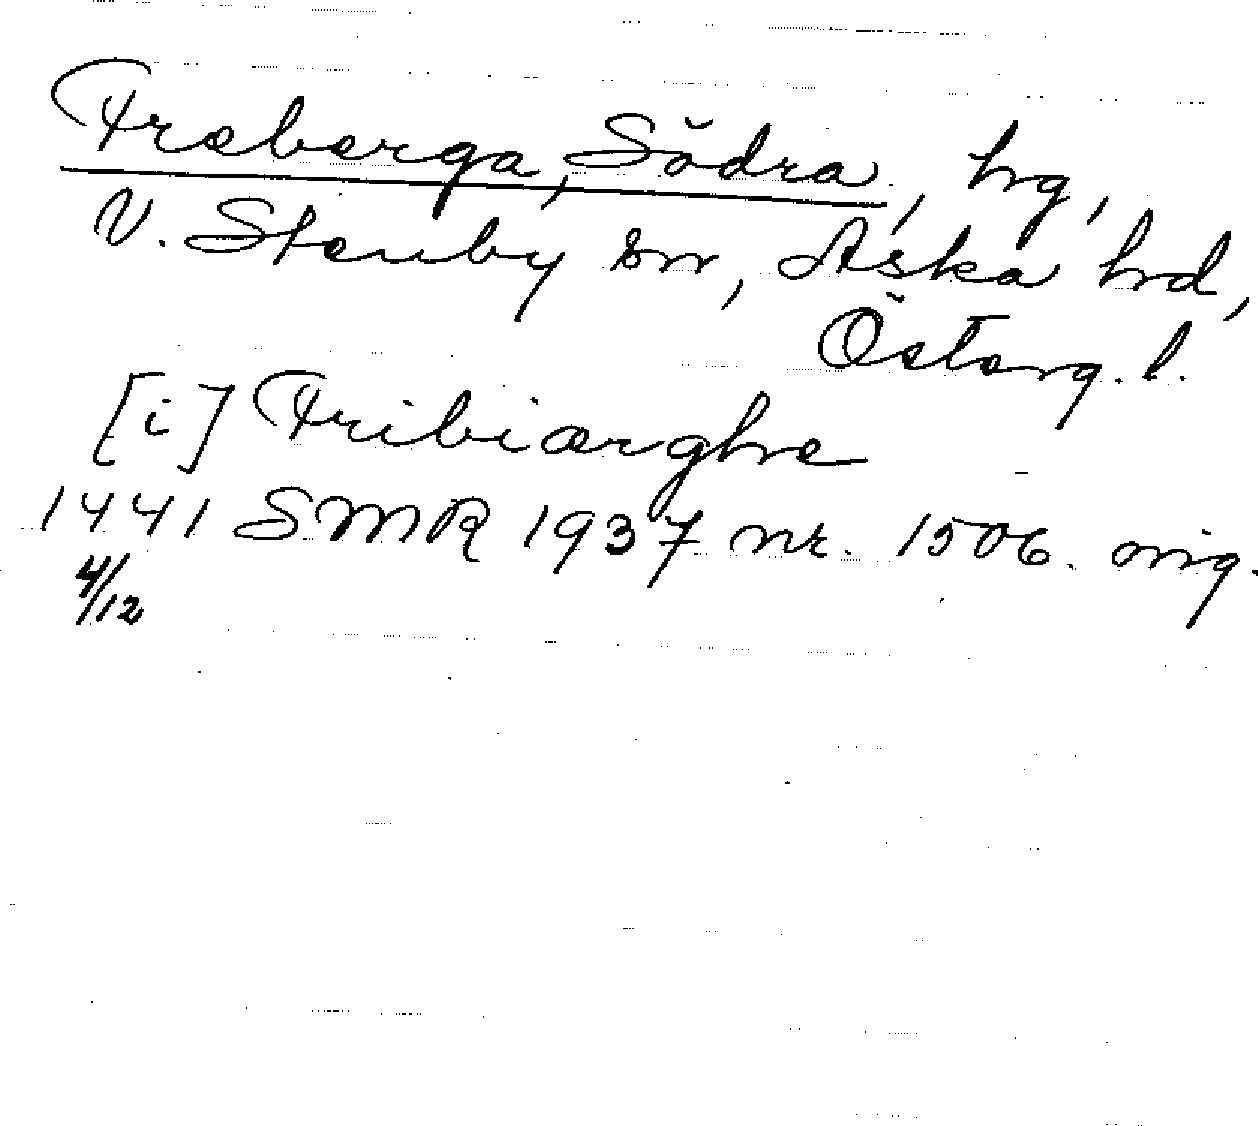 Freberga, Södra, hg,
V. Stenby sn, Aska hd,
Österg. l.
[i] Fribiærghe
1441 SMR 1937 nr. 1506. orig.
4/12